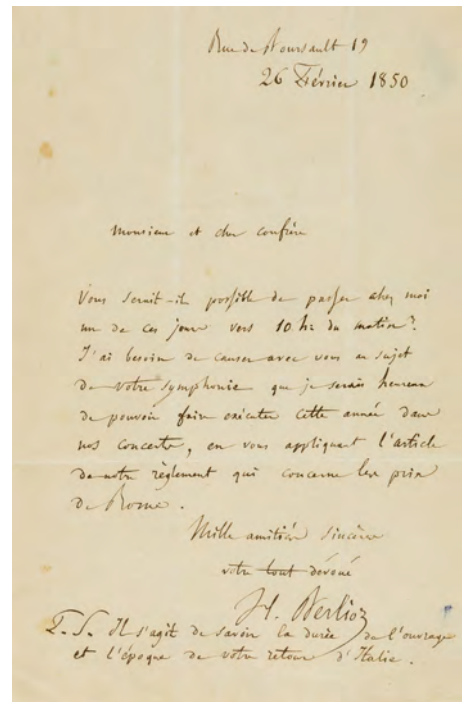 Rue de Boursault 19
26 Février 1850
Monsieur et cher confrère
Vous serait-il possible de passer chez moi
un de ces jours vers 10 h: du matin?
J'ai besoin de causer avec vous au sujet
de votre symphonie que je serais heureux
de pouvoir faire exécuter cette année dans
nos concerts, en vous appliquant l'article
de notre règlement qui concerne les prix
de Rome.
Mille amitiés sincères
votre tout dévoué
H. Berlioz
P.S. Il s'agit de savoir la durée de l'ouvrage
et l'époque de votre retour d'Italie.